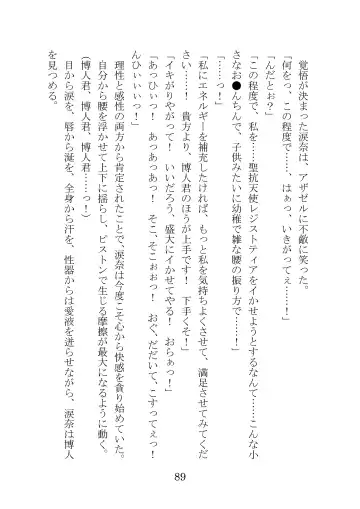 覚悟が決まった涙奈は、アザゼルに不敵に笑った。
「何をっ、この程度で……、はぁっ、いきがってぇ……！」
「んだとぉ？」
「この程度で、私を……聖抗天使レジストティアをイかせようとするなんて……こんな小
さなお●んちんで、子供みたいに幼稚で雑な腰の振り方で……！」
「……っ！」
「私にエネルギーを補充したければ、もっと私を気持ちよくさせて、満足させてみてくだ
さい……！　貴方より、博人君のほうが上手です！　下手くそ！」
「イキがりやがって！　いいだろう、盛大にイかせてやる！　おらぁっ！」
「あっひぃっ！　あっあっあっ！　そこ、そこぉぉっ！　おぐ、だだいて、こすってぇっ！
んひぃぃぃっ！」
　理性と感性の両方から肯定されたことで、涙奈は今度こそ心から快感を貪り始めていた。
　自分から腰を浮かせて上下に揺らし、ピストンで生じる摩擦が最大になるように動く。
（博人君、博人君、博人君……っ！）
　目から涙を、唇から涎を、全身から汗を、性器からは愛液を迸らせながら、涙奈は博人
を見つめる。
89